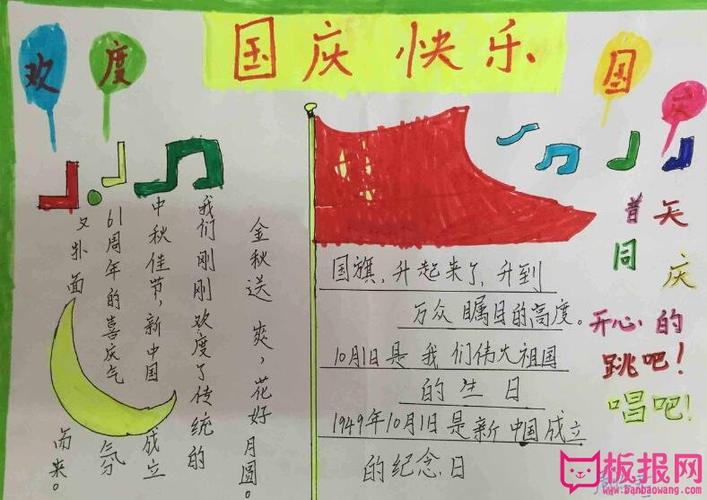 国庆快乐
欢度国
金秋送爽，花好月圆。
我们刚刚欢度了传统的
中秋佳节，新中国成立
61周年的喜庆气氛
又扑面而来。
国旗，升起来了，升到
万众瞩目的高度。
10月1日是我们伟大祖国
的生日
1949年10月1日是新中国成立
的纪念日
普天
同庆
开心的
跳吧！
唱吧！
板报网
www.banbaowang.com